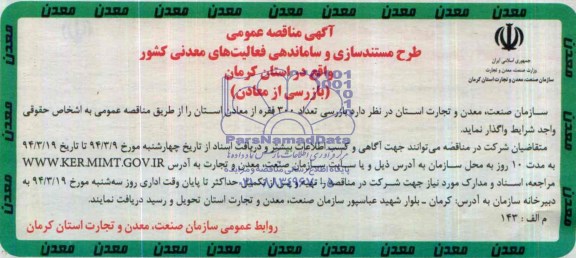 آگهی مناقصه عمومی
طرح مستندسازی و ساماندهی فعالیت‌های معدنی کشور
واقع در استان کرمان
(بازرسی از معادن)
جمهوری اسلامی ایران
وزارت صنعت، معدن و تجارت
سازمان صنعت، معدن و تجارت استان کرمان
سازمان صنعت، معدن و تجارت استان در نظر دارد بازرسی تعداد ۳۰۰ فقره از معادن استان را از طریق مناقصه عمومی به اشخاص حقوقی
واجد شرایط واگذار نماید.
متقاضیان شرکت در مناقصه می‌توانند جهت آگاهی و کسب اطلاعات بیشتر و دریافت اسناد از تاریخ چهارشنبه مورخ ۹۴/۳/۹ تا تاریخ ۹۴/۳/۱۹
به مدت ۱۰ روز به محل سازمان به آدرس ذیل و یا سایت سازمان صنعت، معدن و تجارت به آدرس WWW.KERMIMT.GOV.IR
مراجعه، اسناد و مدارک مورد نیاز جهت شرکت در مناقصه را تهیه و پس از تکمیل حداکثر تا پایان وقت اداری روز سه‌شنبه مورخ ۹۴/۳/۱۹ به
دبیرخانه سازمان به آدرس: کرمان - بلوار شهید عباسپور سازمان صنعت، معدن و تجارت استان تحویل و رسید دریافت نمایند.
م الف: ۱۴۳
روابط عمومی سازمان صنعت، معدن و تجارت استان کرمان
ParsNamadData